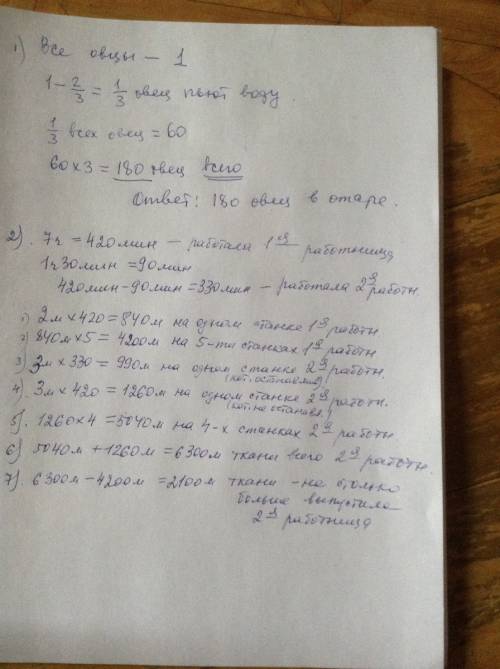 1) Все овцы – 1
1 – 2/3 = 1/3 овец пьют воду.
1/3 всех овец = 60
60 x 3 = 180 овец всего
Ответ: 180 овец в отаре.
2). 7ч = 420 мин – работала 1ая работница
1ч 30 мин = 90 мин
420 мин – 90 мин = 330 мин – работала 2я работн.
1) 2м x 420 = 840 м на одном станке 1я работн
2) 840м x 5 = 4200м на 5-ти станках 1я работн
3) 3м x 330 = 990м на одном станке 2я работн.
(кот. оставил)
4). 3м x 420 = 1260м на одном станке 2я работн.
(кот. не останавл)
5). 1260 x 4 = 5040м на 4-х станках 2я работн
6) 5040м + 1260м = 6300м ткани всего 2я работн.
7) 6300м – 4200м = 2100м ткани – на столько
больше выпустила
2я работница